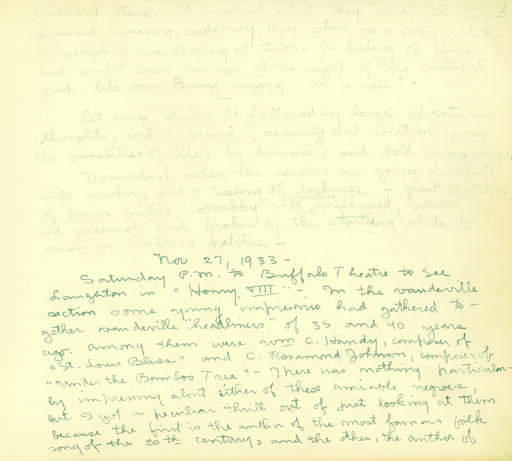 brilliant stars, and wondered what they were,
dreamed suddenly three stars in a row, and
I realized I was looking at Orion. A feeling of peace
and comfort came over me at the sight of this beautiful
like some Being saying "all is well".
Let my studio be hallowed by large adventurous
thoughts, and a feeling of security and isolation from
the banalities of life, by dreams, and bold imaginings
November when the seasons are going downhill
into winter, and a feeling of darkness – great stretches
of brown fields,
old and broken by the startling white of
snow in patches –
Nov. 27, 1933 –
Saturday P.M. to Buffalo Theatre to see
Laughton in "Henry VIII" – In the vaudeville
section some young impresario had gathered to-
gether vaudeville "headliners" of 35 and 40 years
ago. Among them were Wm C. Handy, composer of
"St. Louis Blues" and C. Rosamond Johnson, composer of
"Under the Bamboo Tree" – There was nothing particular-
ly impressing about either of these amiable negroes,
but I got a peculiar thrill out of just looking at them
because the first is the author of the most famous folk
song of the 20th century, and the other, the author of